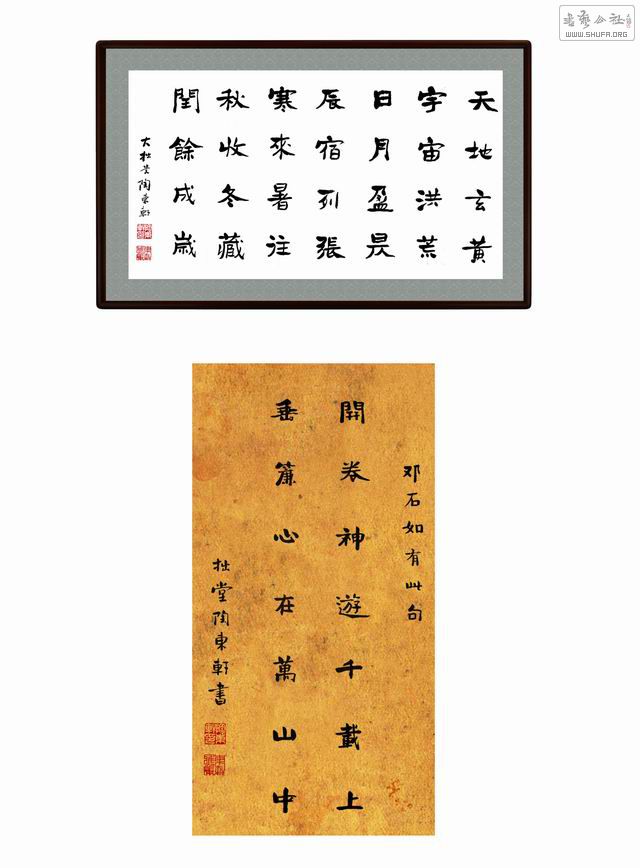 書藝公社
WWW.SHUFA.ORG
天地玄黃
宇宙洪荒
日月盈昃
辰宿列張
寒來暑往
秋收冬藏
閏餘成歲
大拙陶東軒
邓石如有此句
開卷神遊千載上
垂簾心在萬山中
拙堂陶東軒書